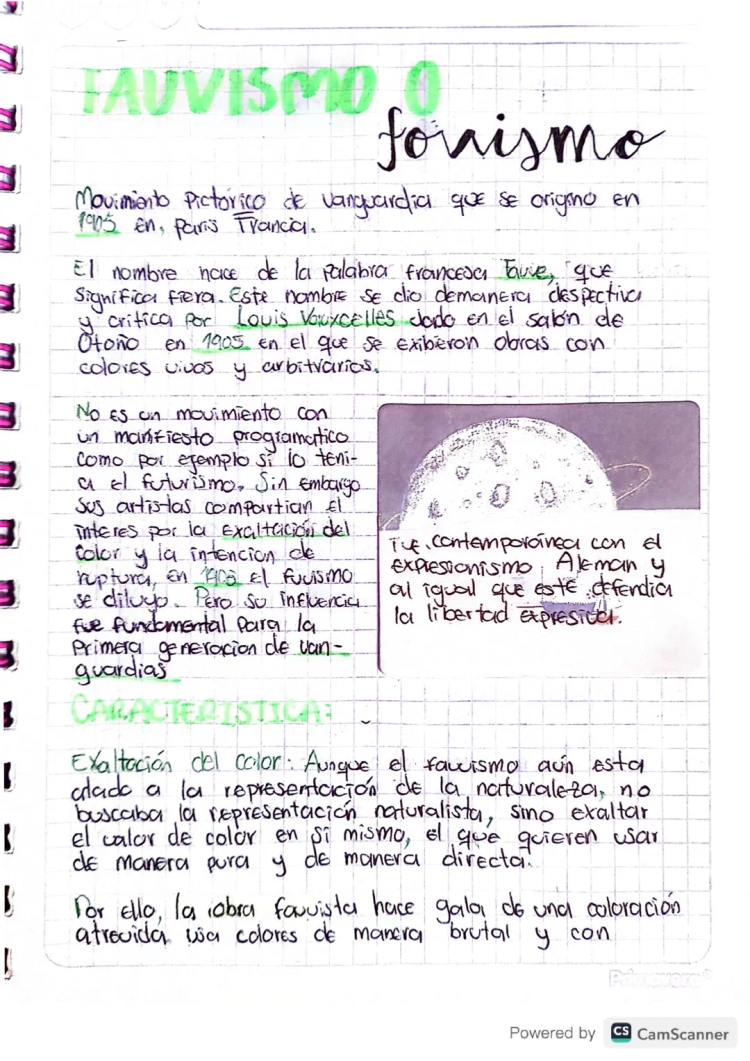 FAUVISMO O
fovismo
Movimiento Pictórico de vanguardia que se origino en
1905 en, paris Francia.
El nombre nace de la Palabra francesa Fauve, que
Significa fiera. Este nombre se dio demanera despectiva
y critica Por Louis Vauxcelles dado en el salón de
Otoño en 1905 en el que se exibieron obras con
colores vivos y arbitrarios.
No es un movimiento con
un manifiesto programatico
como por ejemplo si lo teni-
a el futurismo. Sin embargo
sus artistas compartian el
interes por la exaltación del
color y la intencion de
ruptura, en 1908 el fuvismo
se diluyo. Pero su influencia
fue fundamental Para la
Primera generacion de van-
guardias
Fue contemporánea con el
expresionismo Aleman y
al igual que este defendia
la libertad expresiva.
CARACTERISTICA:
Exaltación del color: Aunque el fauvismo aún esta
atado a la representación de la naturaleza, no
buscaba la representación naturalista, sino exaltar
el valor de color en si mismo, el que quieren usar
de manera pura y de manera directa.
Por ello, la obra fauvista hace gala de una coloración
atrevida usa colores de manera brutal y con
Primavera
Powered by CS CamScanner